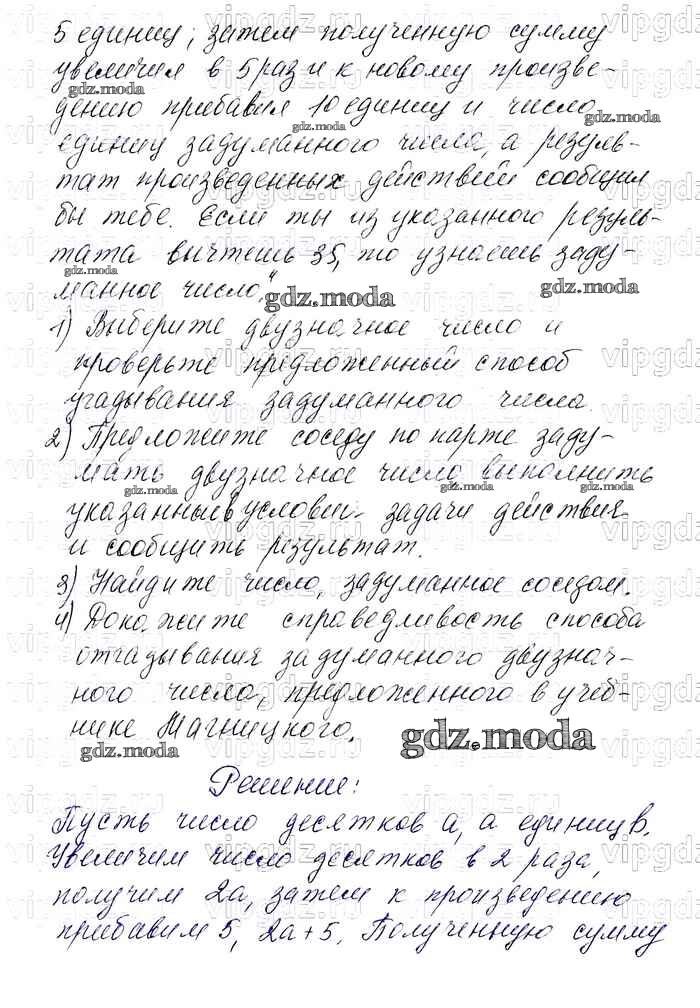 5 единиц; затем полученную сумму
увеличил в 5 раз и к новому произве-
дению прибавил 10 единиц и число
единиц задуманного числа, а резуль-
тат произведенных действий сообщил
бы тебе. Если ты из указанного резуль-
тата вычтешь 35, то узнаешь заду-
манное число."
1) Выберите двузначное число и
проверьте предложенный способ
угадывания задуманного числа.
2) Предложите соседу по парте заду-
мать двузначное число, выполнить
указанные в условии задачи действия
и сообщить результат.
3) Найдите число, задуманное соседом.
4) Докажите справедливость способа
отгадывания задуманного двузнач-
ного числа, предложенного в учеб-
нике Магницкого.
gdz.moda
Решение:
Пусть число десятков a, а единиц b.
Увеличим число десятков в 2 раза,
получим 2a, затем к произведению
прибавим 5, 2a+5. Полученную сумму